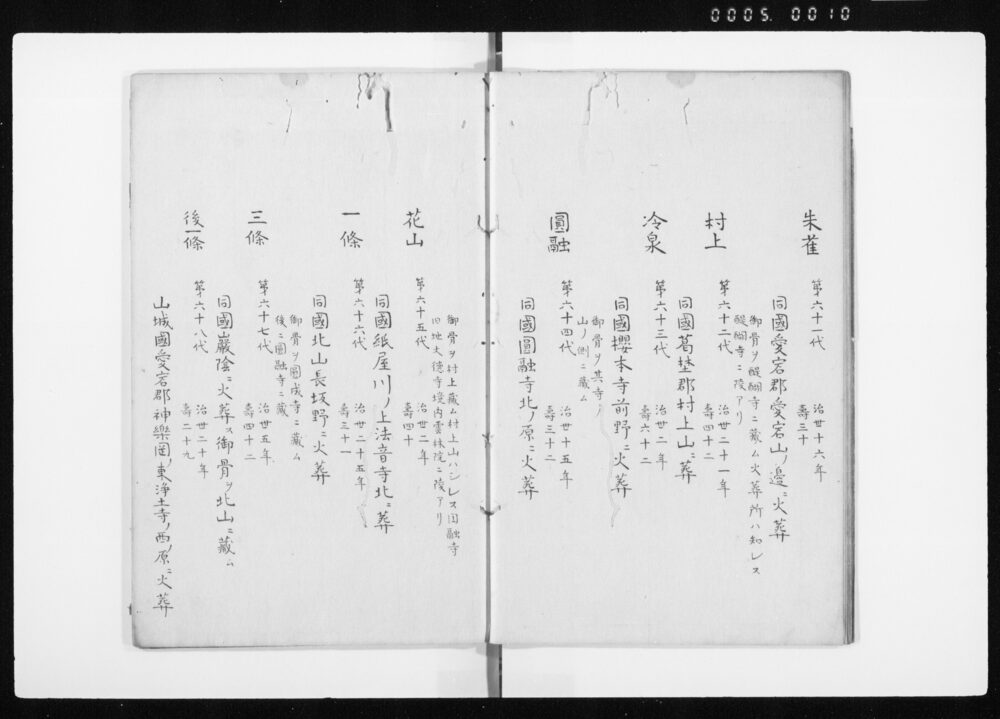 0005. 0010
朱雀
第六十一代
治世十六年
壽三十
同國愛宕郡愛宕山ノ邊ニ火葬
御骨ヲ醍醐寺ニ藏ム火葬所ハ知レス
醍醐寺ニ陵アリ
村上
第六十二代
治世二十一年
壽四十二
同國葛埜郡村上山ニ葬
冷泉
第六十三代
治世二年
壽六十二
同國櫻本寺前野ニ火葬
御骨ヲ其寺ノ
山ノ側ニ藏ム
圓融
第六十四代
治世十五年
壽三十二
同國圓融寺北ノ原ニ火葬
御骨ヲ村上藏ム村上山ハシレス圓融寺
旧地大德寺境内雲林院ニ陵アリ
花山
第六十五代
治世二年
壽四十
同國紙屋川ノ上法音寺北ニ葬
一條
第六十六代
治世二十五年
壽三十一
同國北山長坂野ニ火葬
御骨ヲ圓成寺ニ藏ム
後ニ圓融寺ニ藏
三條
第六十七代
治世五年
壽四十二
同國巖陰ニ火葬ス御骨ヲ北山ニ藏ム
後一條
第六十八代
治世二十年
壽二十九
山城國愛宕郡神樂岡ノ東淨土寺ノ西ノ原ニ火葬